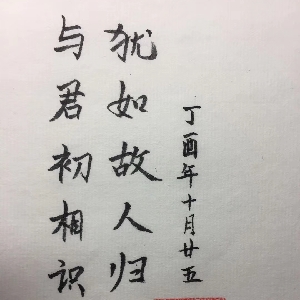 与君初相识
犹如故人归
丁酉年十月廿五